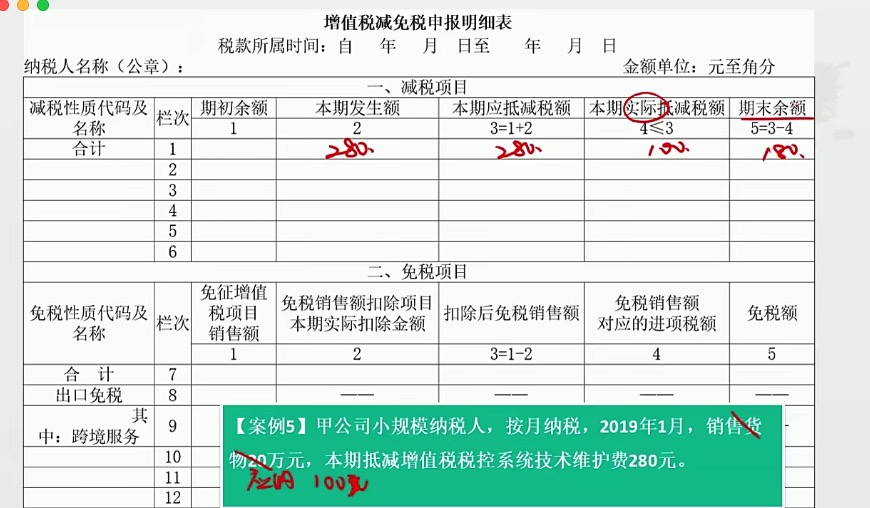 增值税减免税申报明细表
税款所属时间：自　年　月　日至　年　月　日
纳税人名称（公章）：　金额单位：元至角分
一、减税项目
减税性质代码及名称　栏次　期初余额　本期发生额　本期应抵减税额　本期实际抵减税额　期末余额
1　2　3=1+2　4≤3　5=3-4
合计　1　280.　280.　100.　180.
2
3
4
5
6
二、免税项目
免税性质代码及名称　栏次　免征增值税项目销售额　免税销售额扣除项目本期实际扣除金额　扣除后免税销售额　免税销售额对应的进项税额　免税额
1　2　3=1-2　4　5
合　计　7
出口免税　8　——　——　——　——
其中：跨境服务　9
10
11
12
【案例5】甲公司小规模纳税人，按月纳税，2019年1月，销售货
物20万元，本期抵减增值税税控系统技术维护费280元。
应纳 100元